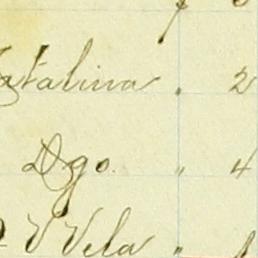 Catalina . 2
Dgo. " 4
V Vela "